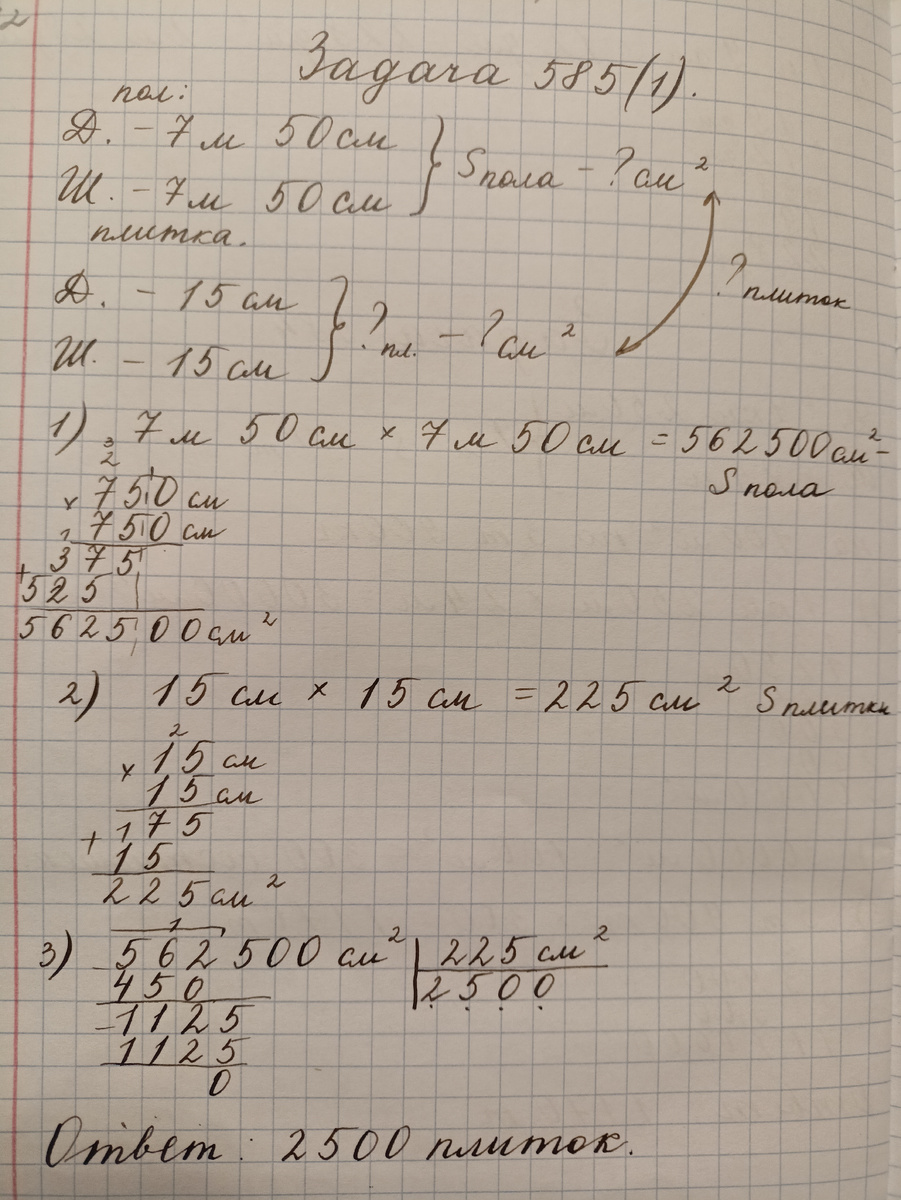 Задача 585(1).
пол:
Д. - 7 м 50 см
Ш. - 7 м 50 см
} Sпола - ? см²
плитка.
Д. - 15 см
Ш. - 15 см
} ?пл. - ? см²
? плиток
1) 7 м 50 см × 7 м 50 см = 562500 см² -
S пола
3
2
× 750 см
750 см
2
+ 375
525
562500 см²
2) 15 см × 15 см = 225 см² S плитки
2
× 15 см
15 см
+ 175
15
225 см²
1
3) 562500 см² | 225 см²
450 2500
- 1125
1125
0
Ответ: 2500 плиток.